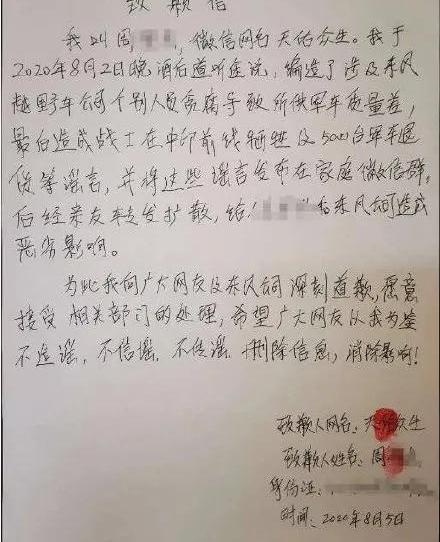 致歉信
我叫周，微信网名天佑众生。我于
2020年8月2日晚酒后道听途说，编造了涉及东风
越野车公司个别人员贪腐导致所供军车质量差，
最后造成战士在中印前线牺牲及5000台军车退
货等谣言，并将这些谣言发布在家庭微信群，
后经亲友转发扩散，给东风公司造成
恶劣影响。
为此我向广大网友及东风公司深刻道歉，愿意
接受相关部门的处理，希望广大网友以我为鉴
不造谣，不信谣，不传谣，删除信息，消除影响！
致歉人网名：天佑众生
致歉人姓名：周
身份证：
时间：2020年8月5日